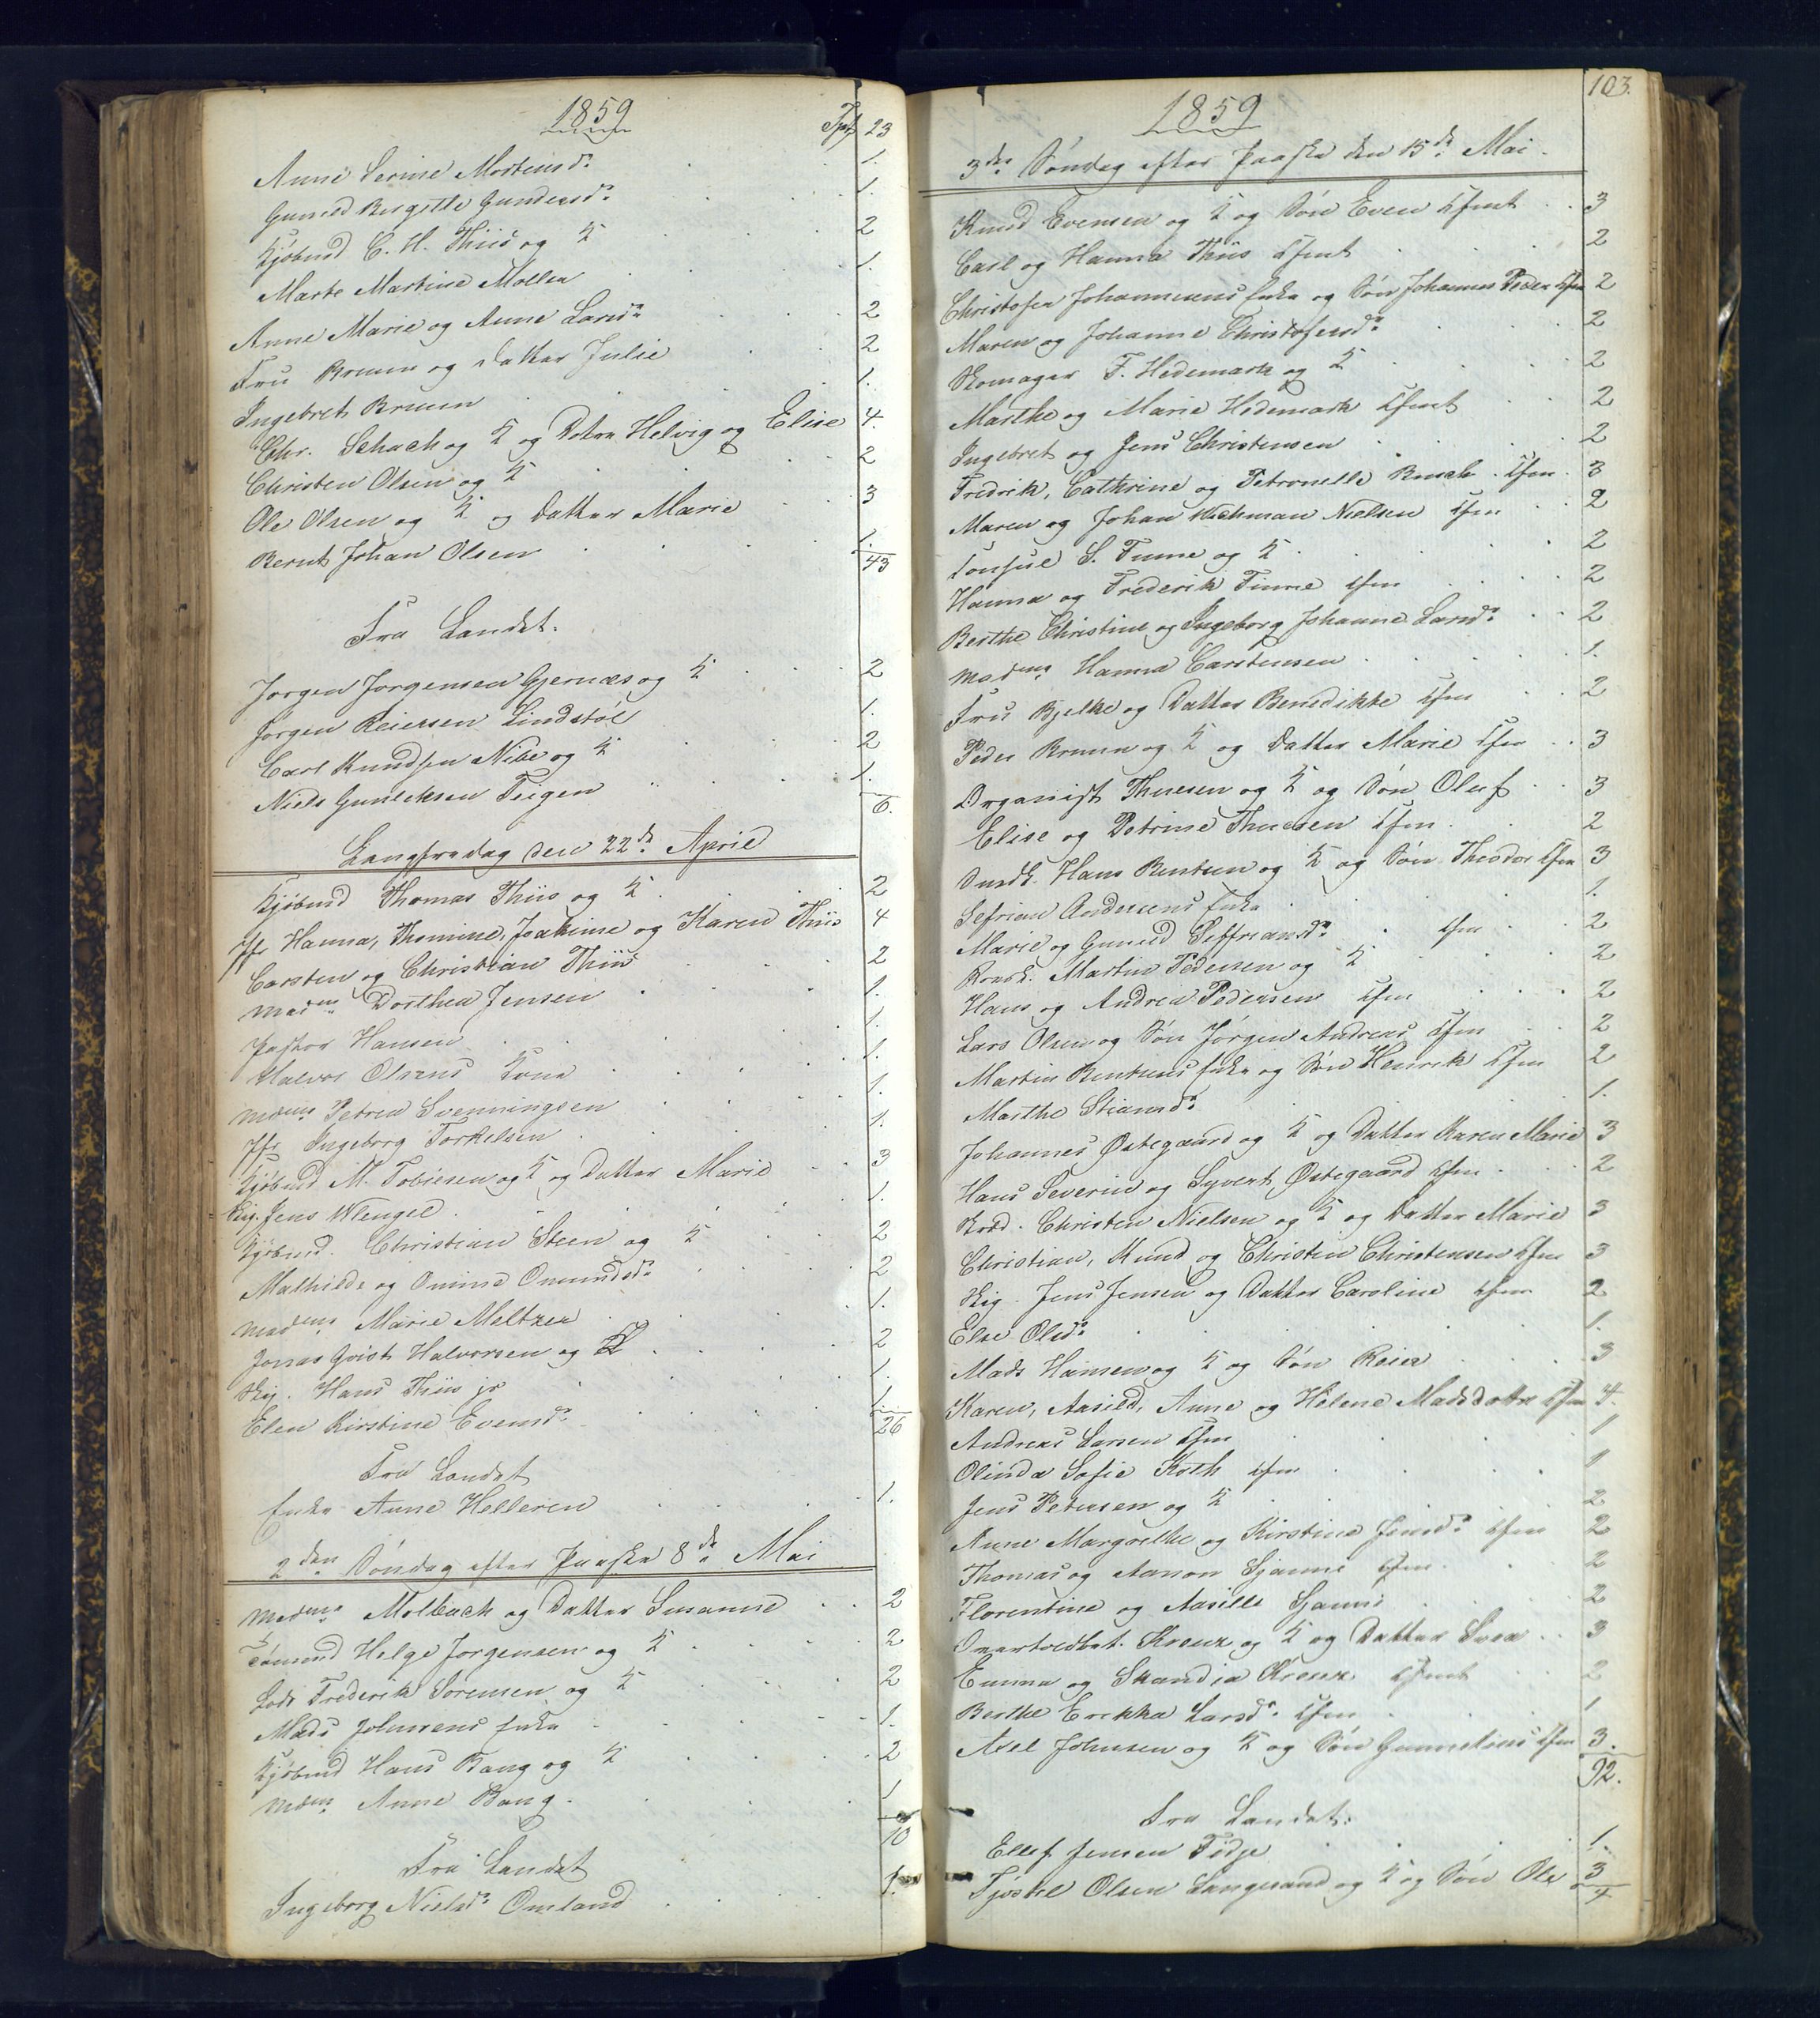 1859
Tpt 23
Anne Serine Mortensd: 1.
Gunild Birgitte Gundersd: 1.
Kjöbmd C. H. Thiis og K 2
Marte Martine Moller 1.
Anne Marie og Anne Larsd: 2
Fru Bruun og Datter Julie 2
Ingebret Bruun 1.
Chr. Schach og K og Døtre Helvig og Elise 4.
Christen Olsen og K 2
Ole Olsen og K og Datter Marie 3
Bernt Johan Olsen 1.
43
Fra Landet.
Jørgen Jørgensen Gjernæs og K 2
Jørgen Reiersen Lindstøl 1.
Carl Knudsen Nibe og K 2
Niels Gunleksen Teigen 1.
6.
Langfredag den 22de April
Kjöbmd Thomas Thiis og K 2
Jfr Hanna, Thomine, Joakime og Karen Thiis 4
Carsten og Christian Thiis 2
Madme Dorthea Jensen 1.
Pastor Hansen 1.
Halvor Olsens Kone 1.
Mdme Petrea Svenningsen 1.
Jfr Ingeborg Torkelsen 1.
Kjöbmd M. Tobiesen og K og Datter Marie 3
Skig. Jens Wengel 1.
Kjöbmd. Christian Steen og K 2
Mathilde og Omine Omundsd: 2
Madme Marie Meltzer 1.
Jonas Qvist Halvorsen og K 2
Skig. Hans Thiis jr 1.
Elen Kirstine Evensd: 1.
26
Fra Landet
Enke Anne Helleren 1.
2den Søndag efter Paaske 8de Mai
Madme Molbach og Datter Susanne 2
Tømmd Helge Jørgensen og K 2
Lods Frederik Sørensen og K 2
Mads Johnsens Enke 1.
Kjöbmd Hans Bang og K 2
Mdme Anne Bang. 1
10
Fra Landet
Ingeborg Nielsd: Omland 1.
103.
1859
3die Søndag efter Paaske den 15de Mai.
Knud Evensen og K og Søn Even Cfmt 3
Carl og Hanna Thiis Cfmt 2
Christofer Johannesens Enke og Søn Johannes Peder Cfm 2
Maren og Johanne Christofersd: 2
Skomager F. Hedemark og K 2
Marthe og Marie Hedemark Cfmt 2
Ingebret og Jens Christensen 2
Fredrik, Cathrine og Petronelle Busch Cfm. 3
Maren og Johan Wichman Nielsen Cfm 2
Consul S. Finne og K. 2
Hanna og Frederik Finne Cfm 2
Berthe Christine og Ingeborg Johanne Larsd: 2
Madme Hanna Carstensen 1.
Fru Bjelke og Datter Benedikte Cfm 2
Peder Bruun og K og Datter Marie Cfm 3
Organist Thuesen og K og Søn Oluf 3
Elise og Petrine Thuesen Cfm. 2
Hans Bentsen og K og Søn Theodor Cfm 3
Sefrian Andersens Enke 1.
Marie og Gunild Seffriansd: Cfm 2
Martin Pedersen og K 2
Hans og Andrea Pedersen Cfm 2
Lars Olsen og Søn Jørgen Andreas Cfm 2
Martin Bentsens Enke og Søn Henrik Cfm 2
Marthe Stiansd: 1.
Johannes Østegaard og K og Datter Karen Marie 3
Hans Severin og Syvert Østegaard Cfm. 2
Christen Nielsen og K og Datter Marie 3
Christian, Knud og Christen Christensen Cfm 3
Skig. Jens Jensen og Datter Caroline Cfm 2
Else Olsd: 1.
Mads Hansen og K og Søn Reier 3
Karen, Aasild, Anne og Helene Madsdøtre Cfm 4.
Andreas Larsen Cfm 1
Olinda Sofie Koth Cfm 1
Jens Petersen og K 2
Anne Margrethe og Kirstine Jensd: Cfm 2
Thomas og Aanon Sjanne Cfm. 2
Florentine og Aasille Sjanne 2
Kreuz og K og Datter Svea 3
Emma og Skandia Kreuz Cfmt 2
Berthe Erikka Larsd: Cfm 1
Axel Johnsen og K og Søn Gunnelius Cfm 3.
92.
Fra Landet:
Ellef Jensen Tidje 1.
Tjøstel Olsen Langesand og K og Søn Ole 3
4